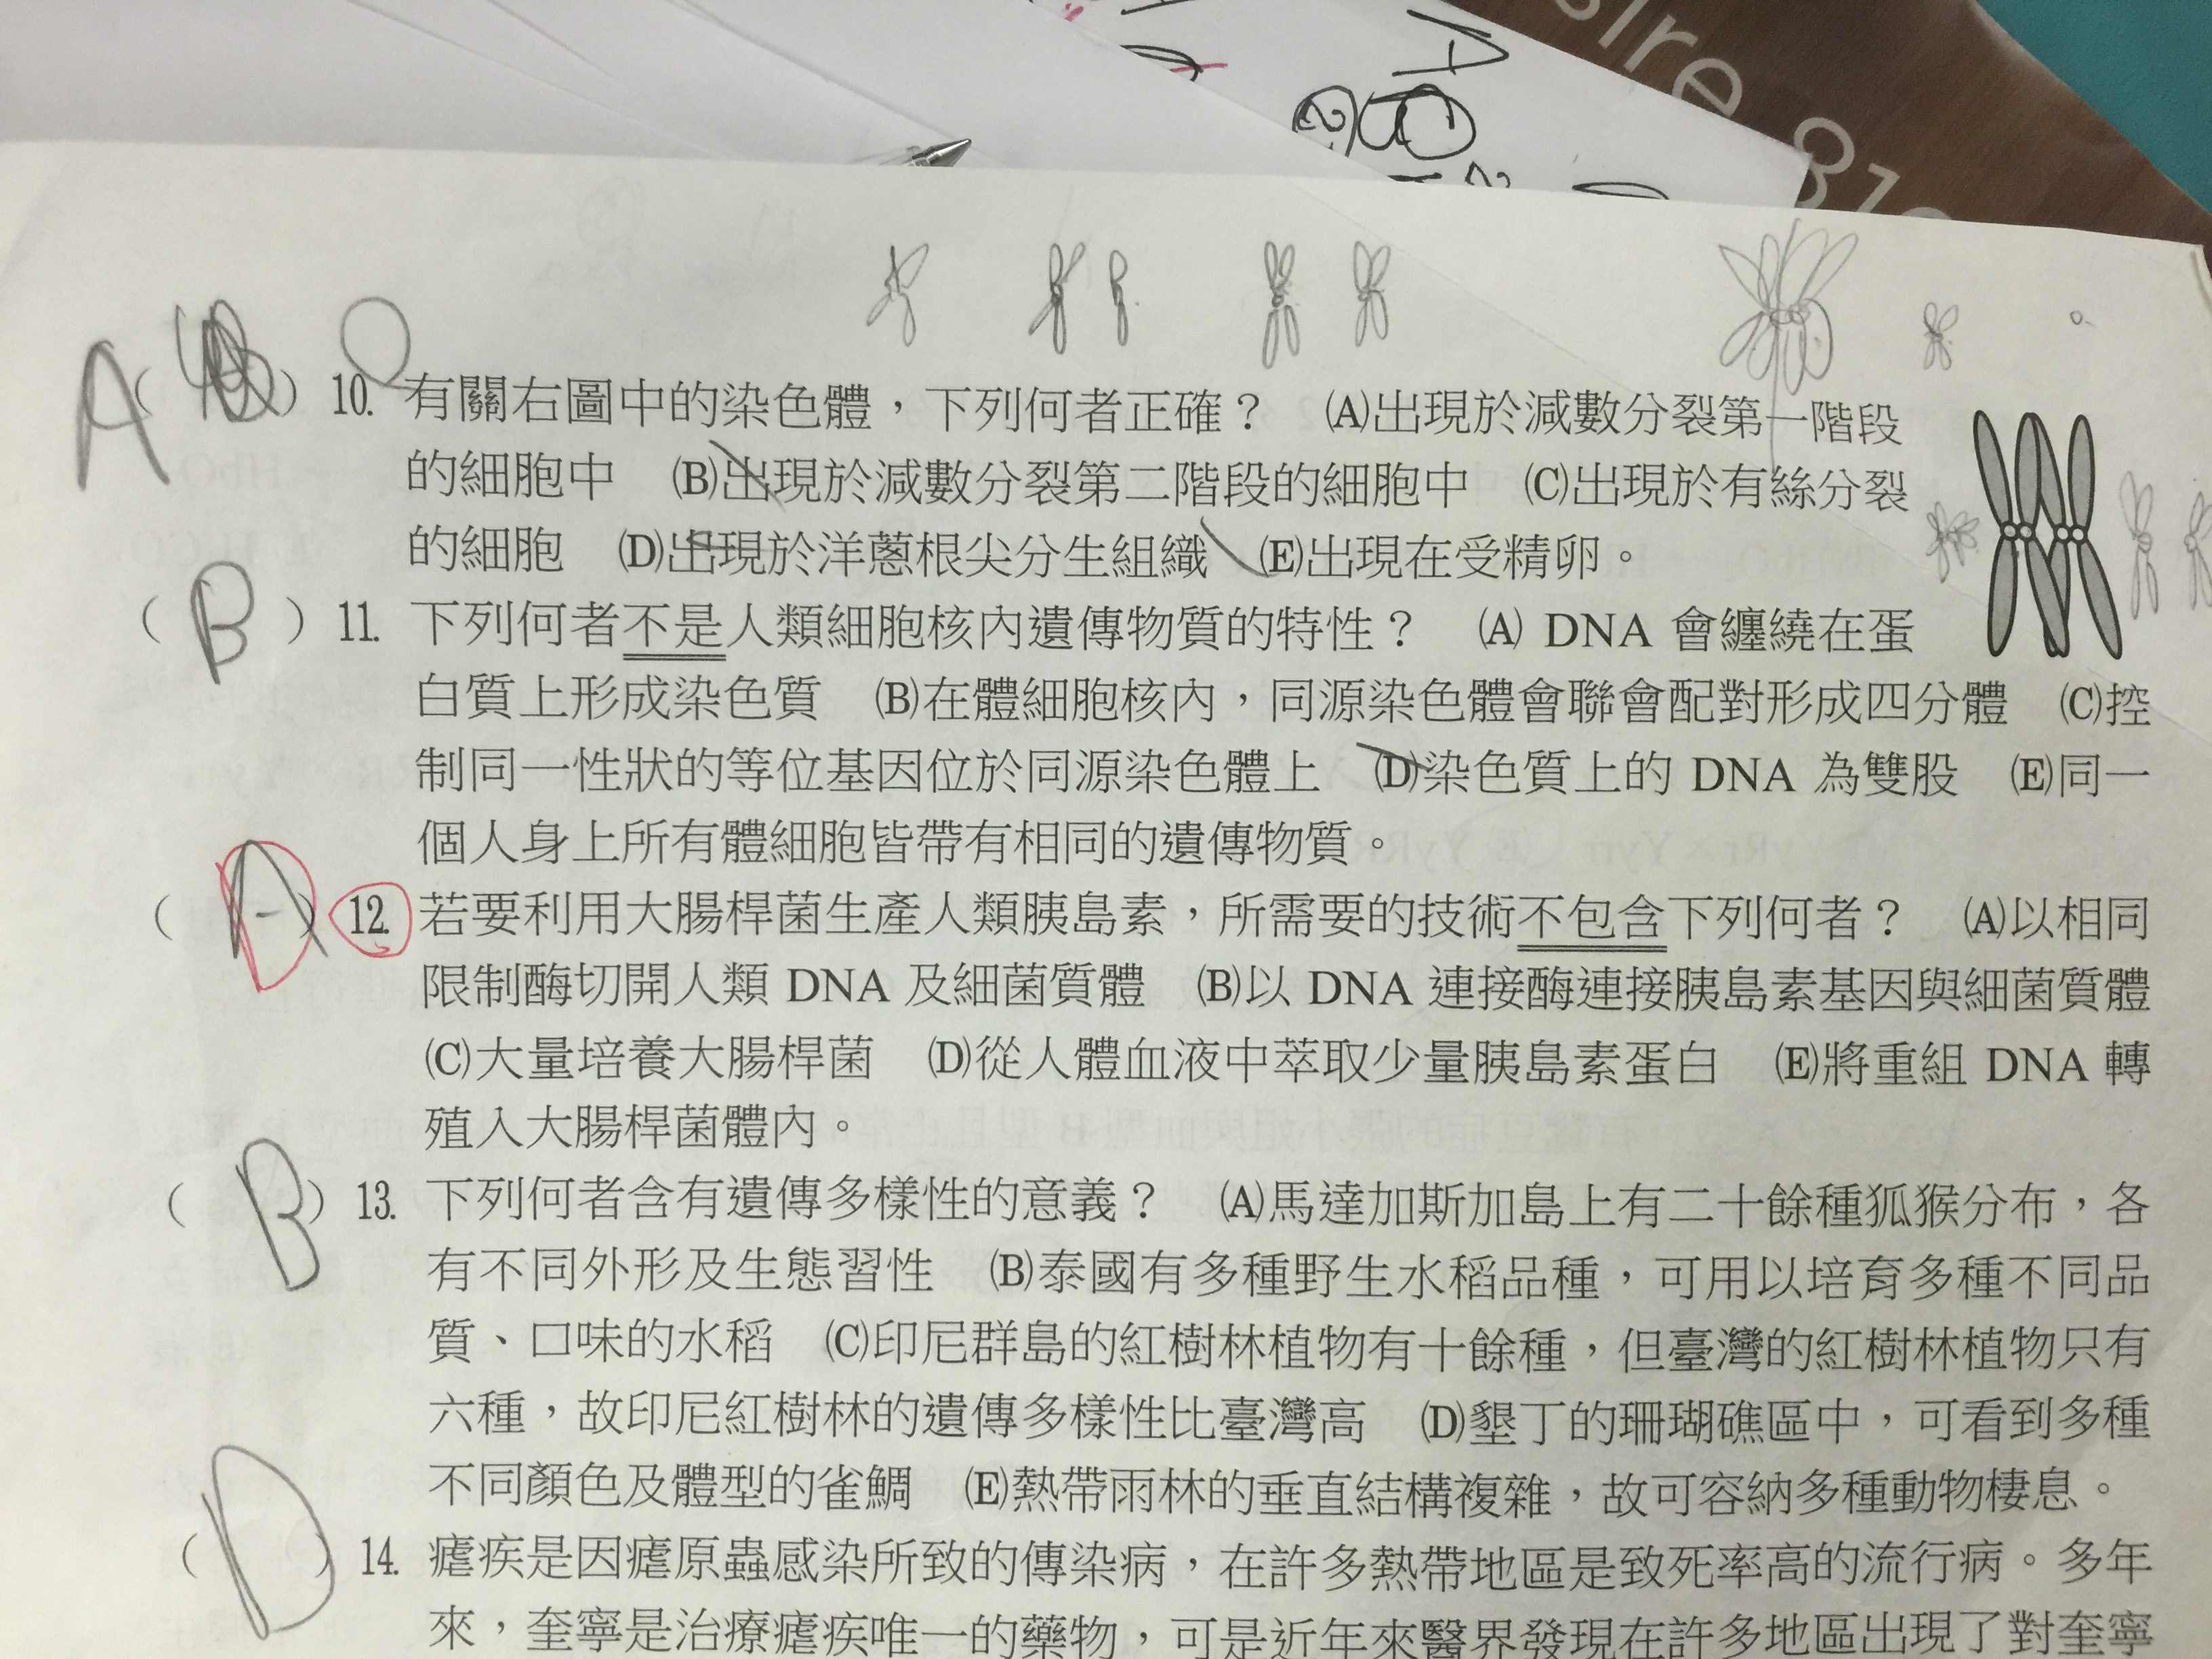 sire 816
A
A
10. 有關右圖中的染色體，下列何者正確？ (A)出現於減數分裂第一階段
的細胞中 (B)出現於減數分裂第二階段的細胞中 (C)出現於有絲分裂
的細胞 (D)出現於洋蔥根尖分生組織 (E)出現在受精卵。
( B ) 11. 下列何者不是人類細胞核內遺傳物質的特性？ (A) DNA 會纏繞在蛋
白質上形成染色質 (B)在體細胞核內，同源染色體會聯會配對形成四分體 (C)控
制同一性狀的等位基因位於同源染色體上 (D)染色質上的 DNA 為雙股 (E)同一
個人身上所有體細胞皆帶有相同的遺傳物質。
( A ) 12. 若要利用大腸桿菌生產人類胰島素，所需要的技術不包含下列何者？ (A)以相同
限制酶切開人類 DNA 及細菌質體 (B)以 DNA 連接酶連接胰島素基因與細菌質體
(C)大量培養大腸桿菌 (D)從人體血液中萃取少量胰島素蛋白 (E)將重組 DNA 轉
殖入大腸桿菌體內。
( B ) 13. 下列何者含有遺傳多樣性的意義？ (A)馬達加斯加島上有二十餘種狐猴分布，各
有不同外形及生態習性 (B)泰國有多種野生水稻品種，可用以培育多種不同品
質、口味的水稻 (C)印尼群島的紅樹林植物有十餘種，但臺灣的紅樹林植物只有
六種，故印尼紅樹林的遺傳多樣性比臺灣高 (D)墾丁的珊瑚礁區中，可看到多種
不同顏色及體型的雀鯛 (E)熱帶雨林的垂直結構複雜，故可容納多種動物棲息。
( D ) 14. 瘧疾是因瘧原蟲感染所致的傳染病，在許多熱帶地區是致死率高的流行病。多年
來，奎寧是治療瘧疾唯一的藥物，可是近年來醫界發現在許多地區出現了對奎寧